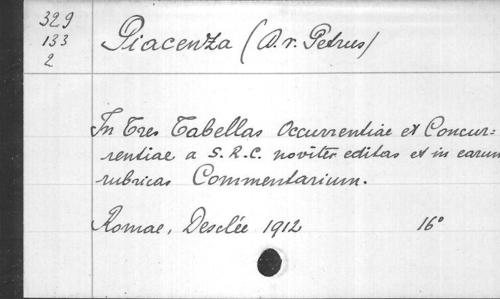 329
133
2
Piacenza (A. r. Petrus)
In Tres Tabellas Occurrentiae et Concur=
rentiae a S. R. C. noviter editas et in earum
rubricas Commentarium.
Romae, Desclée 1912 16°